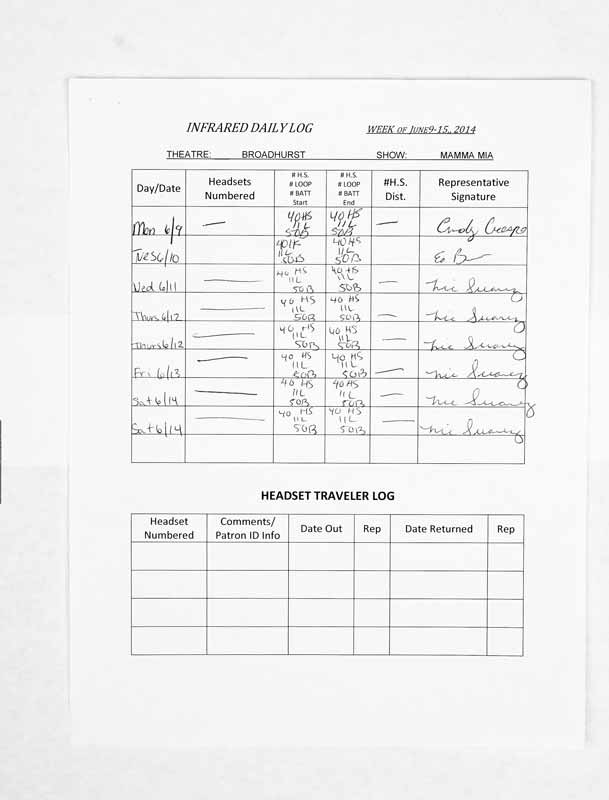 INFRARED DAILY LOG WEEK OF JUNE9-15, 2014
THEATRE: BROADHURST SHOW: MAMMA MIA
Day/Date Headsets Numbered # H.S. # LOOP # BATT Start # H.S. # LOOP # BATT End #H.S. Dist. Representative Signature
Mon 6/9 — 40HS 11L 50B 40HS 11L 50B — Cindy
Tues6/10 11L 50B 40HS 11L 50B
Wed 6/11 — 40 HS 11L 50B 40 HS 50B — Nic Suarez
Thurs 6/12 — 40 HS 11L 50B 40 HS 11L 50B — Nic Suarez
Thurs6/12 — 40 HS 11L 50B 40 HS 11L 50B — Nic Suarez
Fri 6/13 — 40 HS 11L 50B 40 HS 11L 50B — Nic Suarez
Sat 6/14 — 40 HS 11L 50B 40HS 11L 50B — Nic Suarez
Sat 6/14 — 40 HS 11L 50B 40 HS 11L 50B — Nic Suarez
HEADSET TRAVELER LOG
Headset Numbered Comments/ Patron ID Info Date Out Rep Date Returned Rep